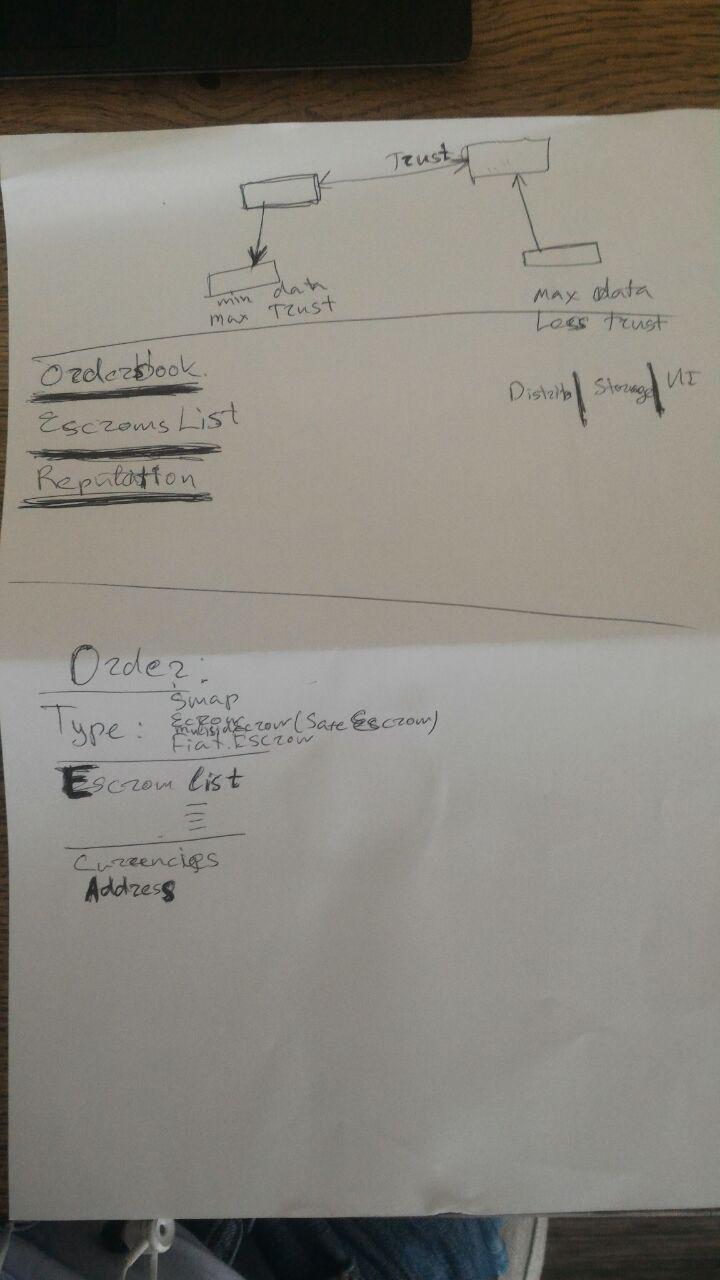 Trust
min data
max Trust
max data
Less trust
Orderbook.
Escrows List
Reputation
Distrib | Storage | UI
Order:
Type: Swap
Escrow
multisigEscrow (Safe Escrow)
Fiat.Escrow
Escrow list
Currencies
Address